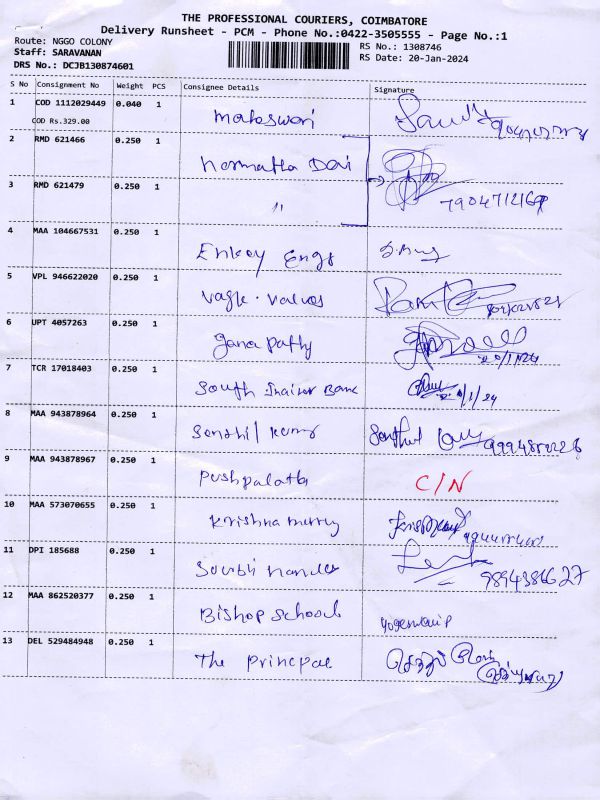 THE PROFESSIONAL COURIERS, COIMBATORE
Delivery Runsheet - PCM - Phone No.:0422-3505555 - Page No.:1
Route: NGGO COLONY
Staff: SARAVANAN
DRS No.: DCJB130874601
RS No.: 1308746
RS Date: 20-Jan-2024
S No Consignment No Weight PCS Consignee Details Signature
1 COD 1112029449 0.040 1 maheswari
COD Rs.329.00
2 RMD 621466 0.250 1 Devi
3 RMD 621479 0.250 1 "
7904712169
4 MAA 104667531 0.250 1 Enkey Engg
5 VPL 946622020 0.250 1 values
6 UPT 4057263 0.250 1 gana pathy
7 TCR 17018403 0.250 1 South Indian Bank
8 MAA 943878964 0.250 1 Senthil kumar Senthil
9 MAA 943878967 0.250 1 Pushpalatha C/N
10 MAA 573070655 0.250 1 Krishna murthy
11 DPI 185688 0.250 1
12 MAA 862520377 0.250 1 Bishop School
13 DEL 529484948 0.250 1 The Principal